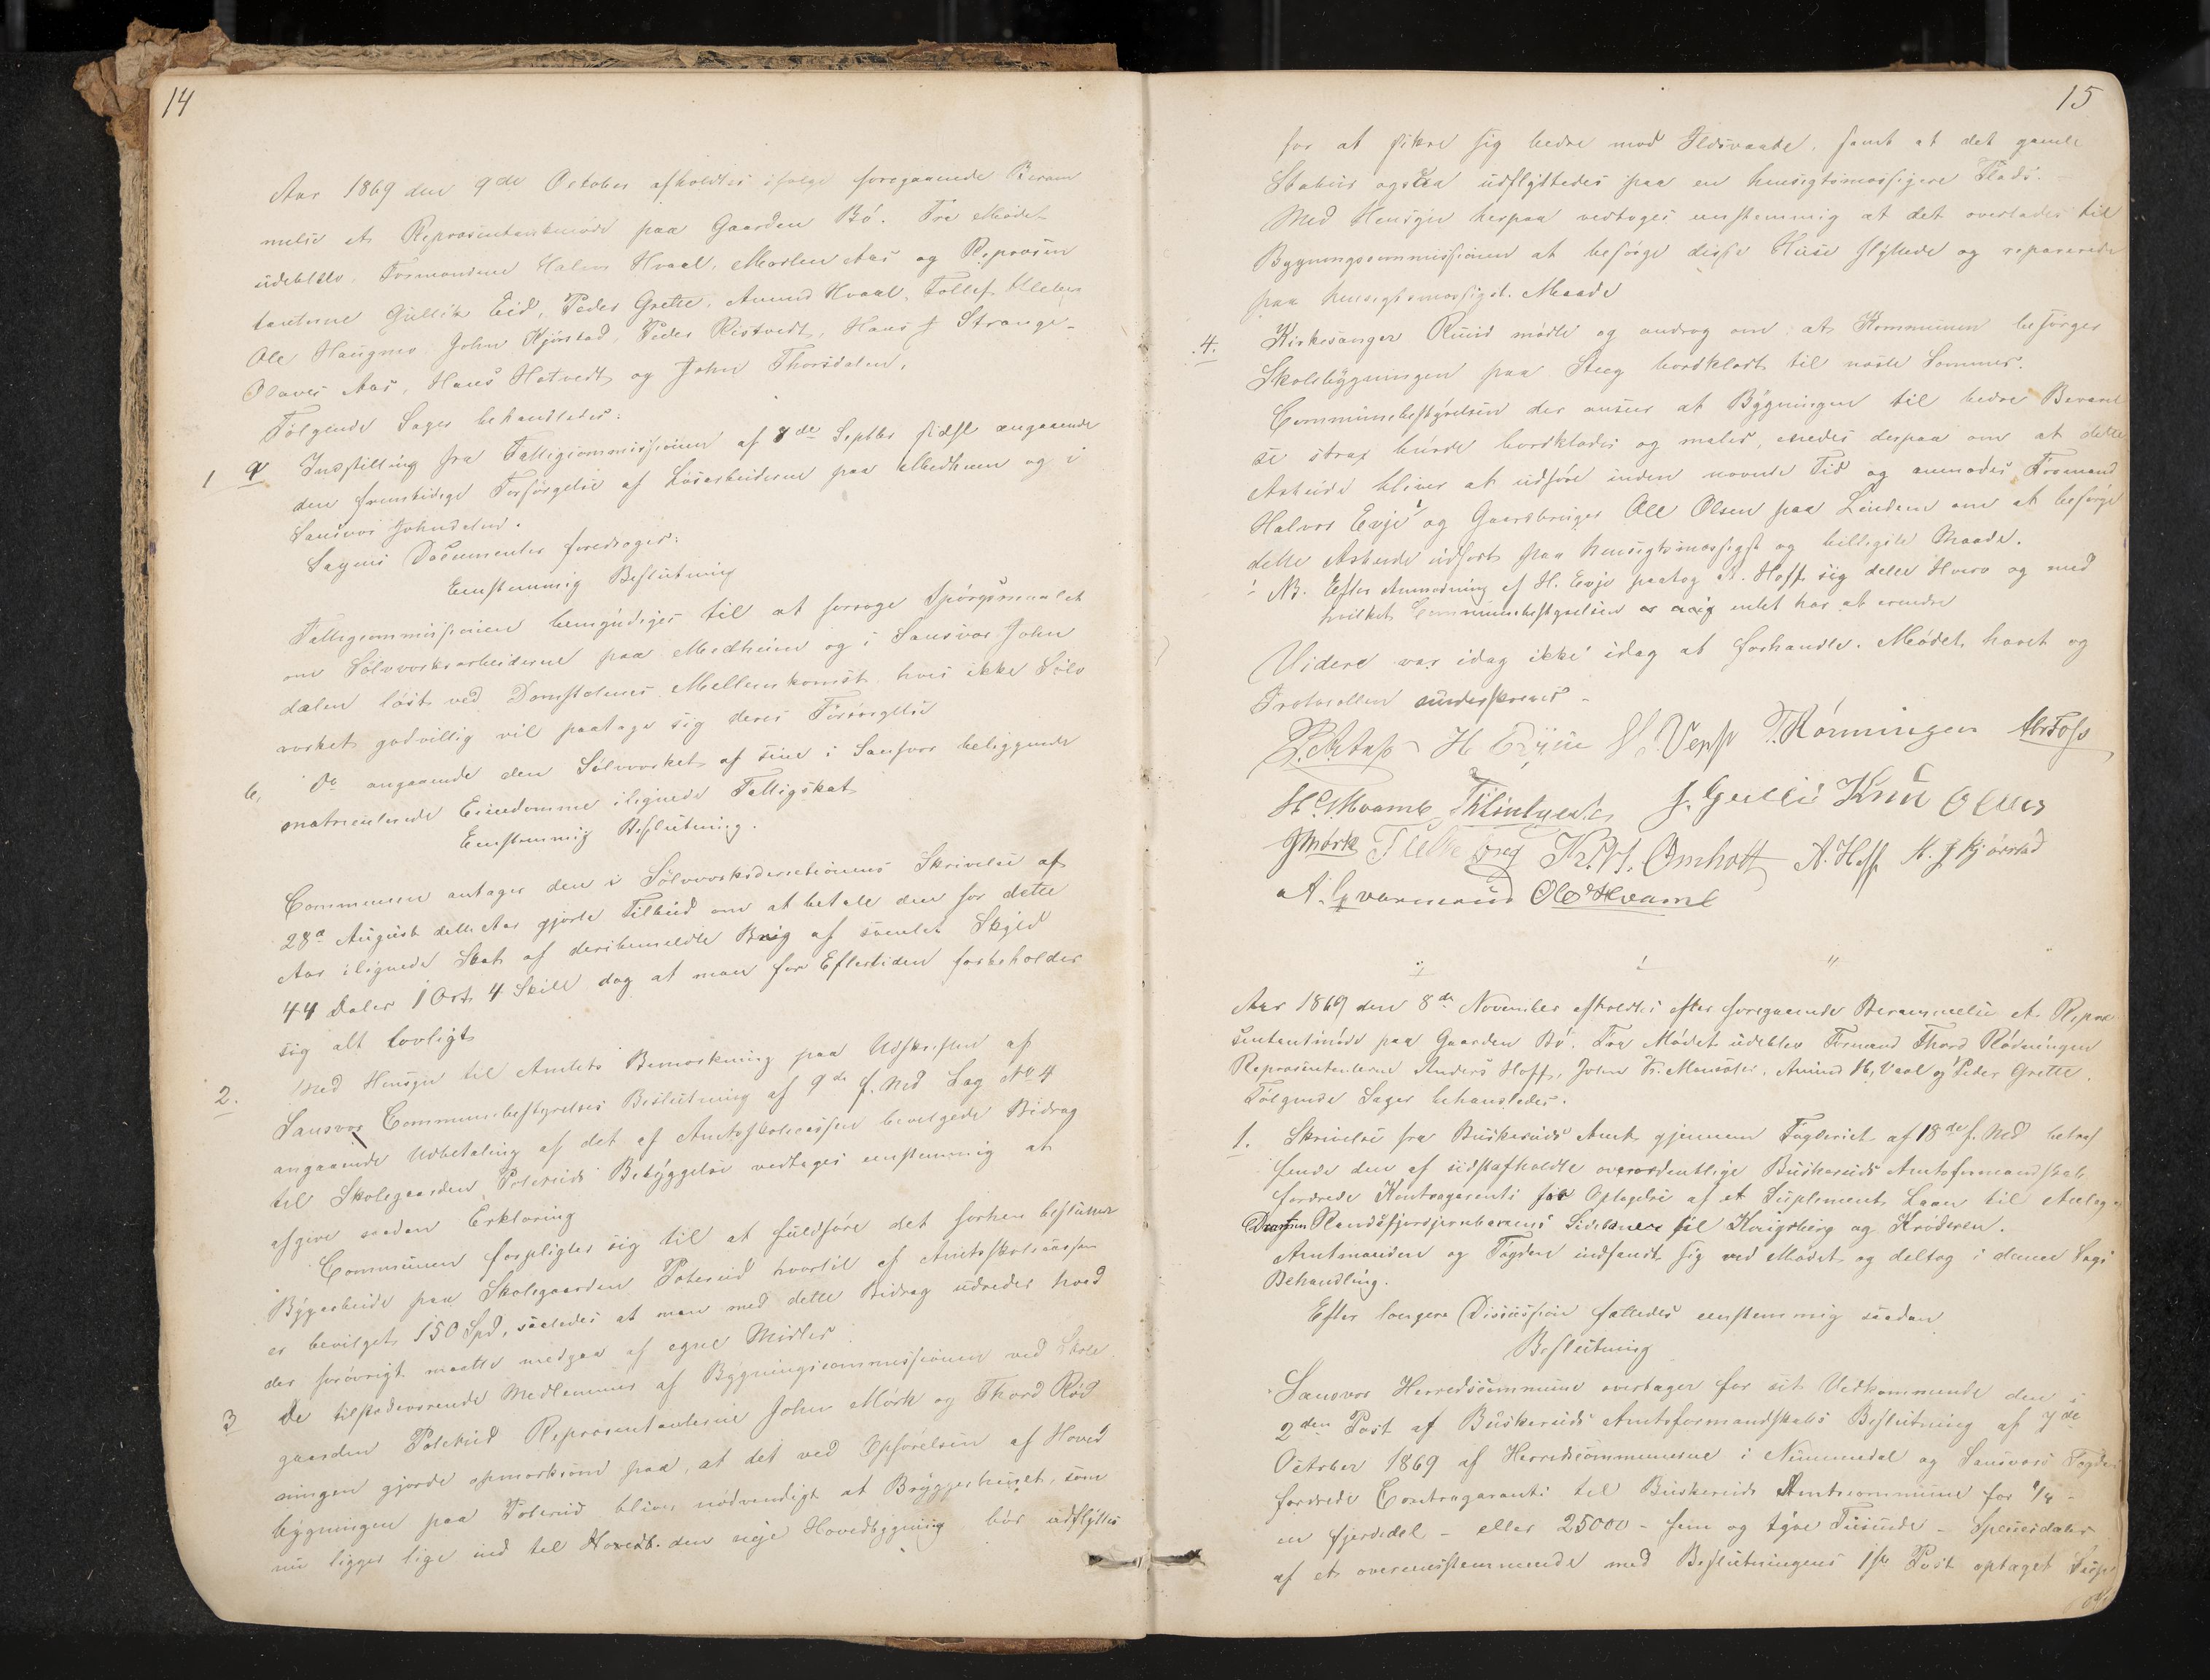 14
Aar 1869 den 9de October afholdtes ifølge foregaaende Beram
melse et Repræsentantmøde paa Gaarden Bö. Fra Mödet
udeblev Formændene Halvor Hvaal, Morten Aas og Repræsen
tanterne Gullik Eid, Peder Grette, Amund Hvaal, Tollef
Ole Haugmo John Kjørstad, Peder Ristvedt, Hans J Strange-
Olaves Aas, Hans Hotvedt og John Thorsdalen.
Følgende Sager behandledes:
1 a Indstilling fra Fattigcommissionen af 8de Septbr sidst angaaende
den fremtidige Forsørgelse af Løsarbeiderne paa Medheim og i
Sansvær Johndalen.
Sagens Documenter foredroges:
Eenstemmig Beslutning
Fattigcommissionen bemyndiges til at forsøge Spørgsmaalet
om Sølvværksarbeiderne paa Medheim og i Sansvær John
dalen løst ved Domstolenes Mellemkomst hvis ikke Sølv
værket godvillig vil paatage sig deres Forsørgelse
b, Do angaaende den Sølvværket af sine i Sansvær beliggende
matriculerede Eiendomme ilignede Fattigskat
Eenstemmig Beslutning.
Communen antager den i Sølvværksdirectionens Skrivelse af
28de August dette Aar gjorte Tilbud om at betale den for dette
Aar ilignede Skat af deribemeldte Brug af samlet Skyld
44 Daler 1 Ort 4 Skill dog at man for Eftertiden forbeholder
sig alt lovligt
2. Med Hensyn til Amtets Bemærkning paa Udskriften af
Sansvær Communebestyrelses Beslutning af 9de f. Md Sag No 4
angaaende Udbetaling af det af Amtsskolecassen bevilgede Bidrag
til Skolegaarden Poteruds Bebyggelse vedtages eenstemmig at
afgive saadan Erklæring
Communen forpligter sig til at fuldføre det forhen besluttede
Bygarbeide paa Skolegaarden Poterud hvortil af Amtsskolecassen
er bevilget 150 Spd, saaledes at man med dette Bidrag udreder hvad
der forøvrigt maatte medgaa af egne Midler
3 De tilstedeværende Medlemmer af Bygningscommissionen ved Skole
gaarden Poterud Repræsentanterne John Mörk og Thord Rön
ningen gjorde opmærksom paa, at det ved Opførelsen af Hoved
bygningen paa Poterud bliver nødvendigt at Bryggerhuset, som
nu ligger lige ind til den nye Hovedbygning bør udflyttes
15
for at sikre sig bedre mod Ildsvaade, samt at det gamle
Stabur ogsaa udflyttedes paa en hensigtsmæssigere Plads.
Med Hensyn herpaa vedtoges eenstemmig at det overlades til
Bygningscommissionen at besørge disse Huse flyttede og reparerede
paa hensigtsmæssigst Maade
4. Kirkesanger Ruud mødte og androg om at Kommunen besørger
Skolebygningen paa Steg bordklædt til næste Sommer.
Communebestyrelsen der ansees at Bygningen til bedre Bevarel
se strax burde bordklædes og males, enedes derpaa om at dette
Arbeide bliver at udføre inden nævnte Tid og anmodes Formand
Halvor Evju og Gaardbruger Ole Olsen paa Lindem om at besørge
dette Arbeide udført paa hensigtsmæssigst og billigste Maade.
NB. Efter Anmodning af H. Evju paatog A. Hoff sig dette Hverv og mod
hvilket Communebestyrelsen intet har at erindre
Videre var idag ikke idag at forhandle. Mødet hævet og
Protocollen underskrevet -
T. Rønningen
H. O. Hvamb J. Gulli
J Mörk Kr. H. Omholt A. Hoff K. J Kjørstad
A. Gvarnerud Ole Hvaml
Aar 1869 den 8de November afholdtes efter foregaaende Berammelse et Repræ
sentantmøde paa Gaarden Bö. Fra Mødet udeblev Formand Thord Rønningen
Repræsentanterne Anders Hoff, John Kr. Moane, Amund H. Vaal og Peder Grette.
Følgende Sager behandledes.
1. Skrivelse fra Buskeruds Amt gjennem Fogderiet af 18de f. Md betræf
fende den af sidstafholdte overordentlige Buskeruds Amtsformandskab
fordrede Kontragaranti for Optagelse af et Suplement Laan til Anlæg
Drammen Randsfjordjernbanens Sidebaner til Kongsberg og Krøderen.
Amtmanden og Fogden indfandt sig ved Mødet og deltog i denne Sags
Behandling.
Efter længere Discussion fattedes eenstemmig saadan
Beslutning
Sansvær Herredscommune overtager for sit Vedkommende den i
2den Post af Buskeruds Amtsformandskabs Beslutning af 7de
October 1869 af Herredscommunerne i Nummedal og Sansværs Fogderi
fordrede Contragaranti til Buskeruds Amtscommune for 1/4 -
en fjerdedel - eller 25000 - fem og tyve Tusinde - Speciesdaler
af et overensstemmende med Beslutningens 1ste Post optaget Supl